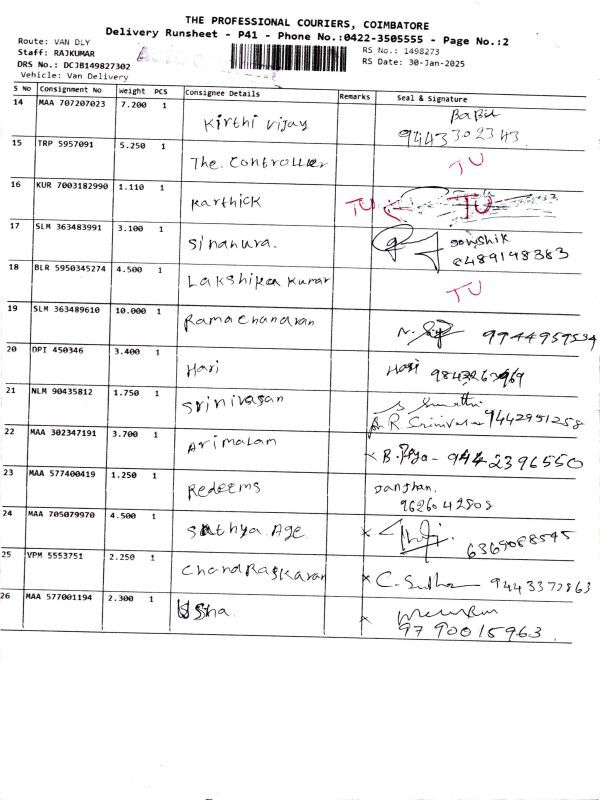 THE PROFESSIONAL COURIERS, COIMBATORE
Delivery Runsheet - P41 - Phone No.:0422-3505555 - Page No.:2
Route: VAN DLY
Staff: RAJKUMAR RS No.: 1498273
DRS No.: DCJB149827302 RS Date: 30-Jan-2025
Vehicle: Van Delivery
S No Consignment No Weight PCS Consignee Details Remarks Seal & Signature
14 MAA 707207023 7.200 1 Kirthi vijay Babu
9443302343
15 TRP 5957091 5.250 1 The. Controller TU
16 KUR 7003182990 1.110 1 Karthick TU TU
17 SLM 363483991 3.100 1 Sinanura. Gowshik
8489148383
18 BLR 5950345274 4.500 1 Kumar TU
19 SLM 363489610 10.000 1 Ramachandran 9944959534
20 DPI 450346 3.400 1 Hari Hari
21 NLM 90435812 1.750 1 Srinivasan
R Srinivasan 9442951258
22 MAA 302347191 3.700 1 Arimalam x B. Priya - 9442396550
23 MAA 577400419 1.250 1 Redeems
9626042808
24 MAA 705079970 4.500 1 Sathya Age x 6369088545
25 VPM 5553751 2.250 1 Chandraskaran x C. Sudha 9443372863
26 MAA 577001194 2.300 1 Usha. x
9790015963